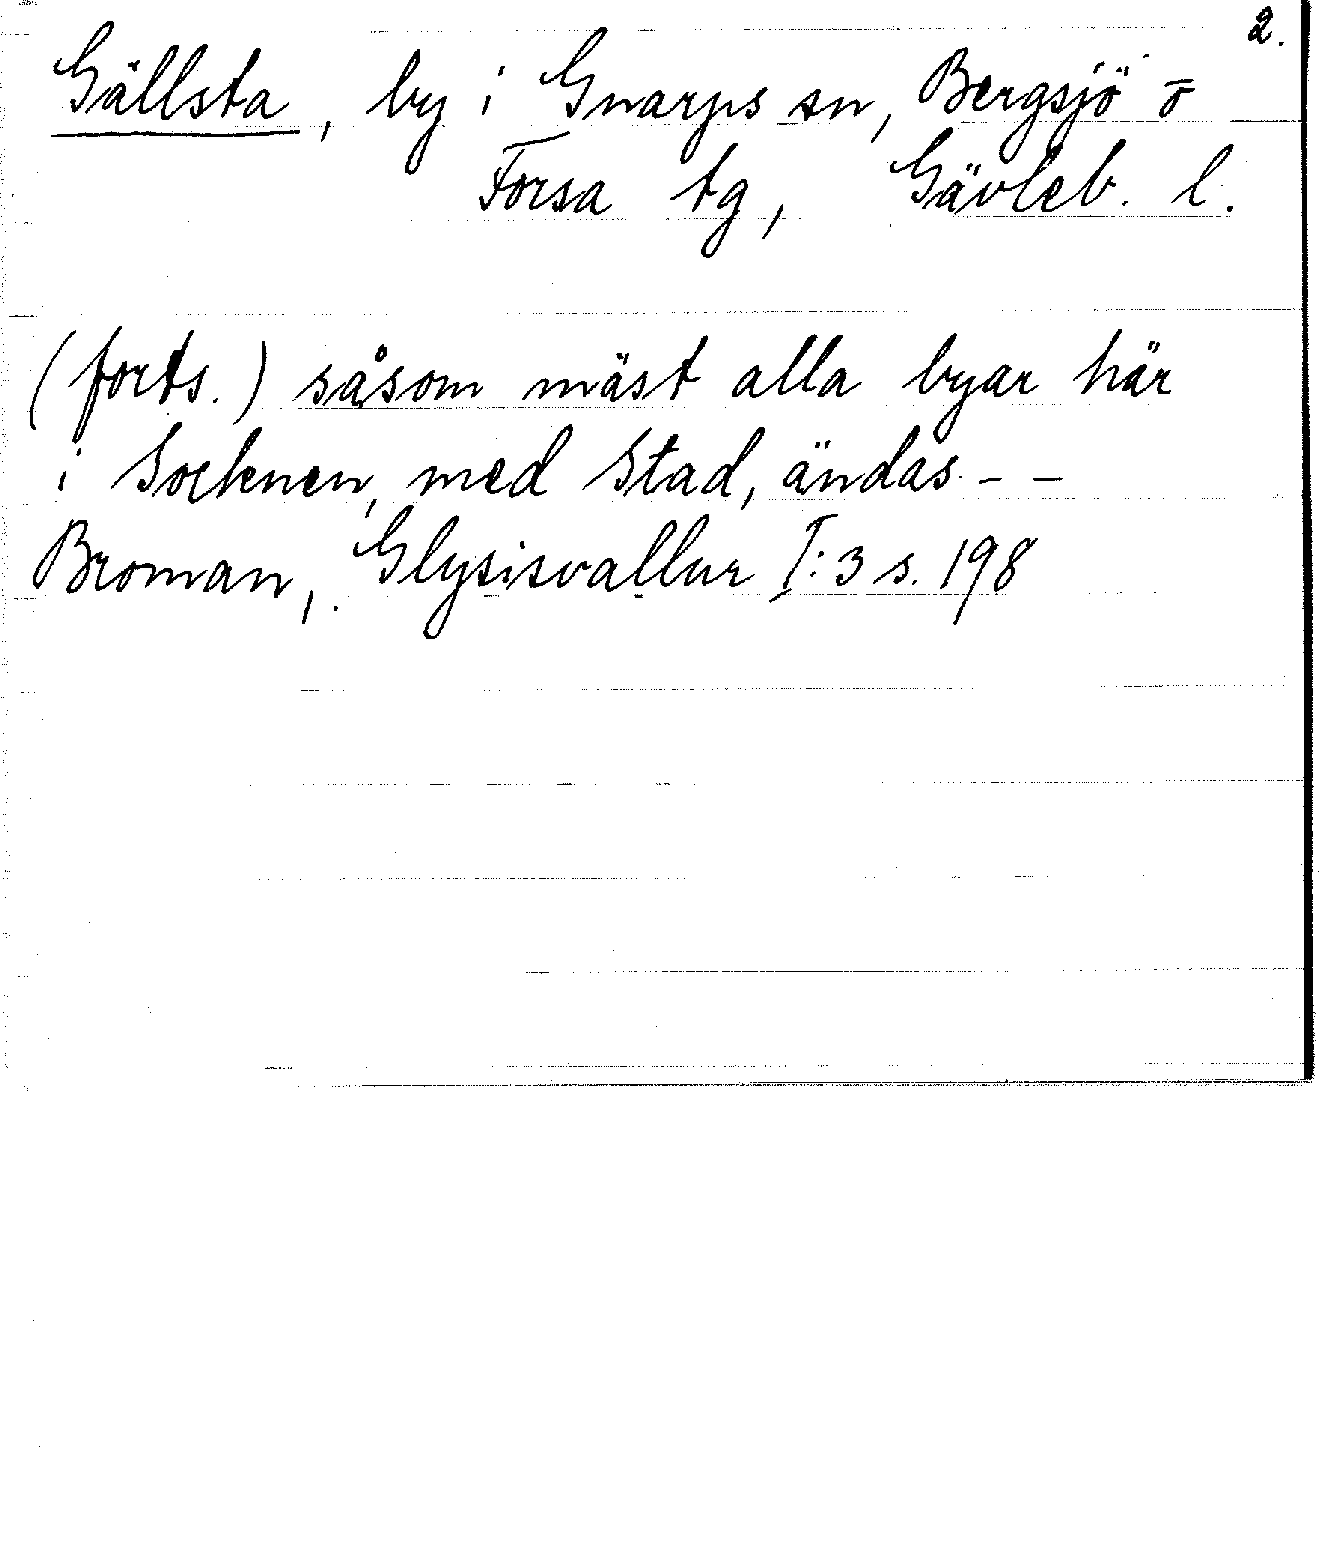 2.
Gällsta, by i Gnarps sn, Bergsjö o
Forsa tg, Gävleb. l.
(forts.) såsom mäst alla byar här
i Socknen, med Stad, ändas - -
Broman, Glysisvallur I:3 s. 198